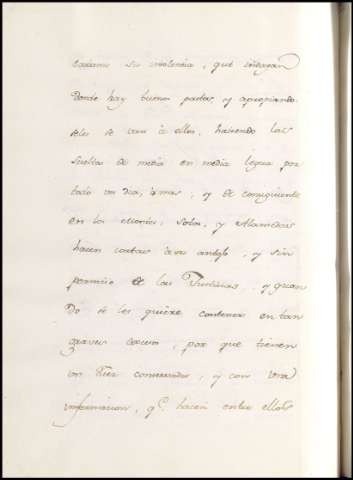 su violencia, que
donde hay buenos pastos, y apropiando
seles se van à ellos, haciendo las
sueltas de media en media legua por
todo un dia, ò mas, y de consiguiente
en los Sotos, y Alamedas
hacen cortas à su antojo, y sin
permiso de las Justicias, y quan
do se les quiere contener en tan
graves excesos, por que tienen
un Juez Conservador, y con una
informacion, q.e hacen entre ellos